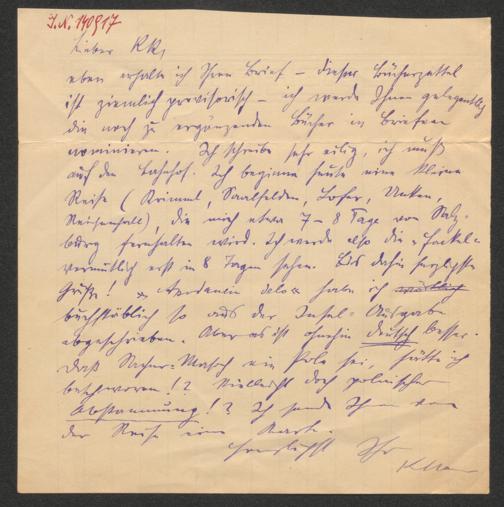 J.N. 140917
Lieber KK,
eben erhalte ich Ihren Brief – dieser Bücherzettel
ist ziemlich provisorisch – ich werde Ihnen gelegentlich
die noch zu ergänzenden Bücher in Briefen
nominieren. Ich schreibe sehr eilig, ich muß
auf den Bahnhof. Ich beginne heute eine kleine
Reise (Krimml, Saalfelden, Lofer, Unken,
Reichenhall), die mich etwa 7–8 Tage von Salz-
burg fernhalten wird. Ich werde also die „Fackel"
vermutlich erst in 8 Tagen sehen. Bis dahin herzlichste
Grüße! habe ich wörtlich
buchstäblich so aus der Insel-Ausgabe
abgeschrieben. Aber es ist ohnehin deutsch besser.
Daß Sacher-Masoch ein Pole sei, hätte ich
beschworen!? Vielleicht doch polnischer
Abstammung!? Ich sende Ihnen von
der Reise eine Karte.
Herzlichst Ihr